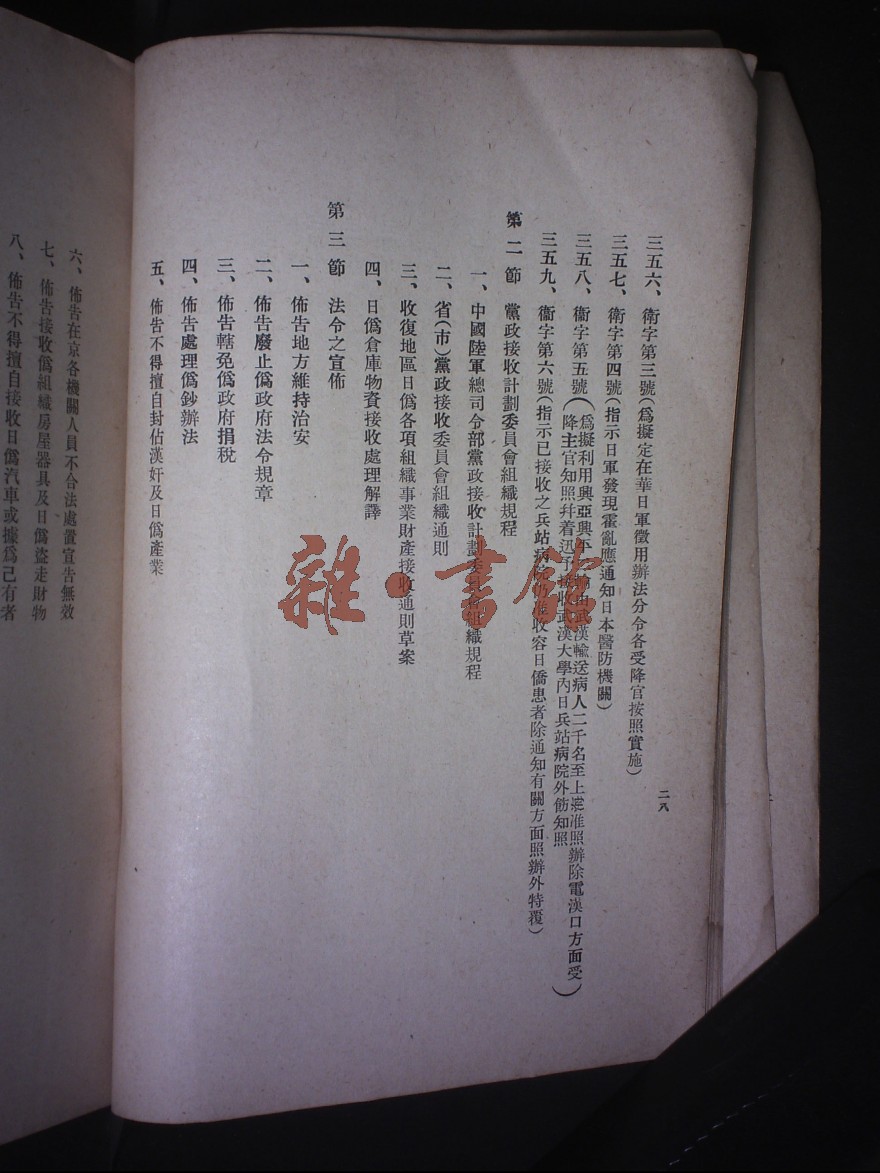 三五六、衛字第三號(爲擬定在華日軍徵用辦法分令各受降官按照實施)
三五七、衛字第四號(指示日軍發現霍亂應通知日本醫防機關)
三五八、衞字第五號(爲擬利用興亞興平 由武漢輸送病人二千名至上 准照辦除電漢口方面受
降主官知照幷着迅予接收武漢大學內日兵站病院外飭知照)
三五九、衞字第六號(指示已接收之兵站病院仍 收容日僑患者除通知有關方面照辦外特覆)
第二節 黨政接收計劃委員會組織規程
一、中國陸軍總司令部黨政接收計劃委員會組織規程
二、省(市)黨政接收委員會組織通則
三、收復地區日僞各項組織事業財產接收通則草案
四、日僞倉庫物資接收處理解譯
第三節 法令之宣佈
一、佈告地方維持治安
二、佈告廢止僞政府法令規章
三、佈告轄免僞政府捐稅
四、佈告處理僞鈔辦法
五、佈告不得擅自封佔漢奸及日僞產業
二八
六、佈告在京各機關人員不合法處置宣告無效
七、佈告接收僞組織房屋器具及日僞盜走財物
八、佈告不得擅自接收日僞汽車或據爲己有者
雜·書館